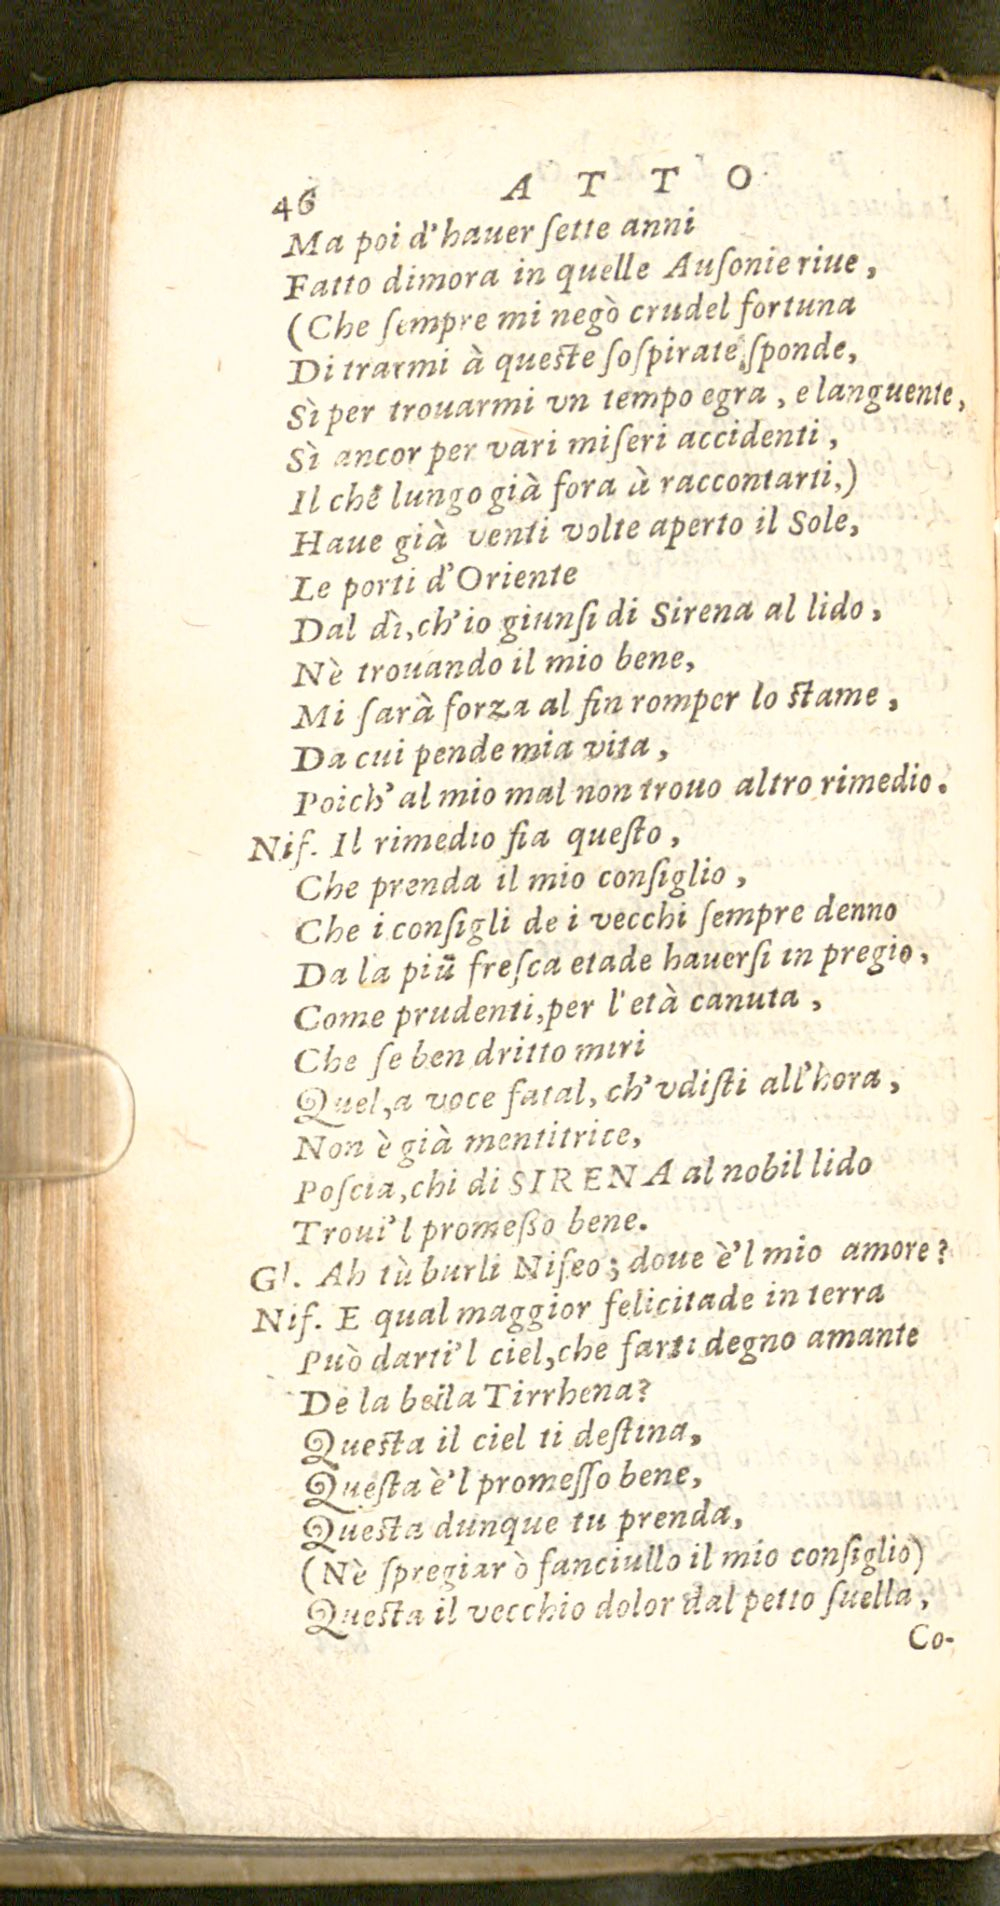 46 ATTO
Ma poi d'hauer ſette anni
Fatto dimora in quelle Auſonie riue,
(Che ſempre mi negò crudel fortuna
Di trarmi à queſte ſoſpirate ſponde,
Sì per trouarmi vn tempo egra, e languente,
Sì ancor per vari miſeri accidenti,
Il che lungo già fora à raccontarti,)
Haue già venti volte aperto il Sole,
Le porti d'Oriente
Dal dì, ch'io giunſi di Sirena al lido,
Nè trouando il mio bene,
Mi ſarà forza al fin romper lo ſtame,
Da cui pende mia vita,
Poich' al mio mal non trouo altro rimedio.
Niſ. Il rimedio fia queſto,
Che prenda il mio conſiglio,
Che i conſigli de i vecchi ſempre denno
Da la più freſca etade hauerſi in pregio,
Come prudenti, per l'età canuta,
Che ſe ben dritto miri
Quel,a voce fatal, ch'vdiſti all'hora,
Non è già mentitrice,
Poſcia, chi di SIRENA al nobil lido
Troui'l promeßo bene.
Gl. Ah tù burli Niſeo; doue è'l mio amore?
Niſ. E qual maggior felicitade in terra
Può darti'l ciel, che farti degno amante
De la bella Tirrhena?
Queſta il ciel ti deſtina,
Queſta è'l promeſſo bene,
Queſta dunque tu prenda,
(Nè ſpregiar ò fanciullo il mio conſiglio)
Queſta il vecchio dolor dal petto ſuella,
Co-